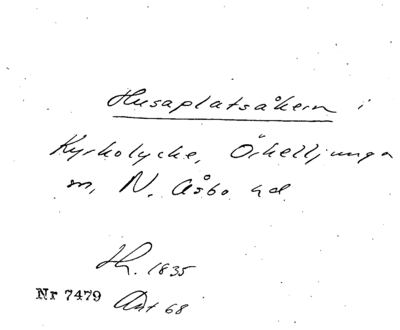 Husaplatsåkern i
Kyrkolycke, Örkelljunga
m, N. Åsbo hd
H. 1835
Nr 7479 Ant 68